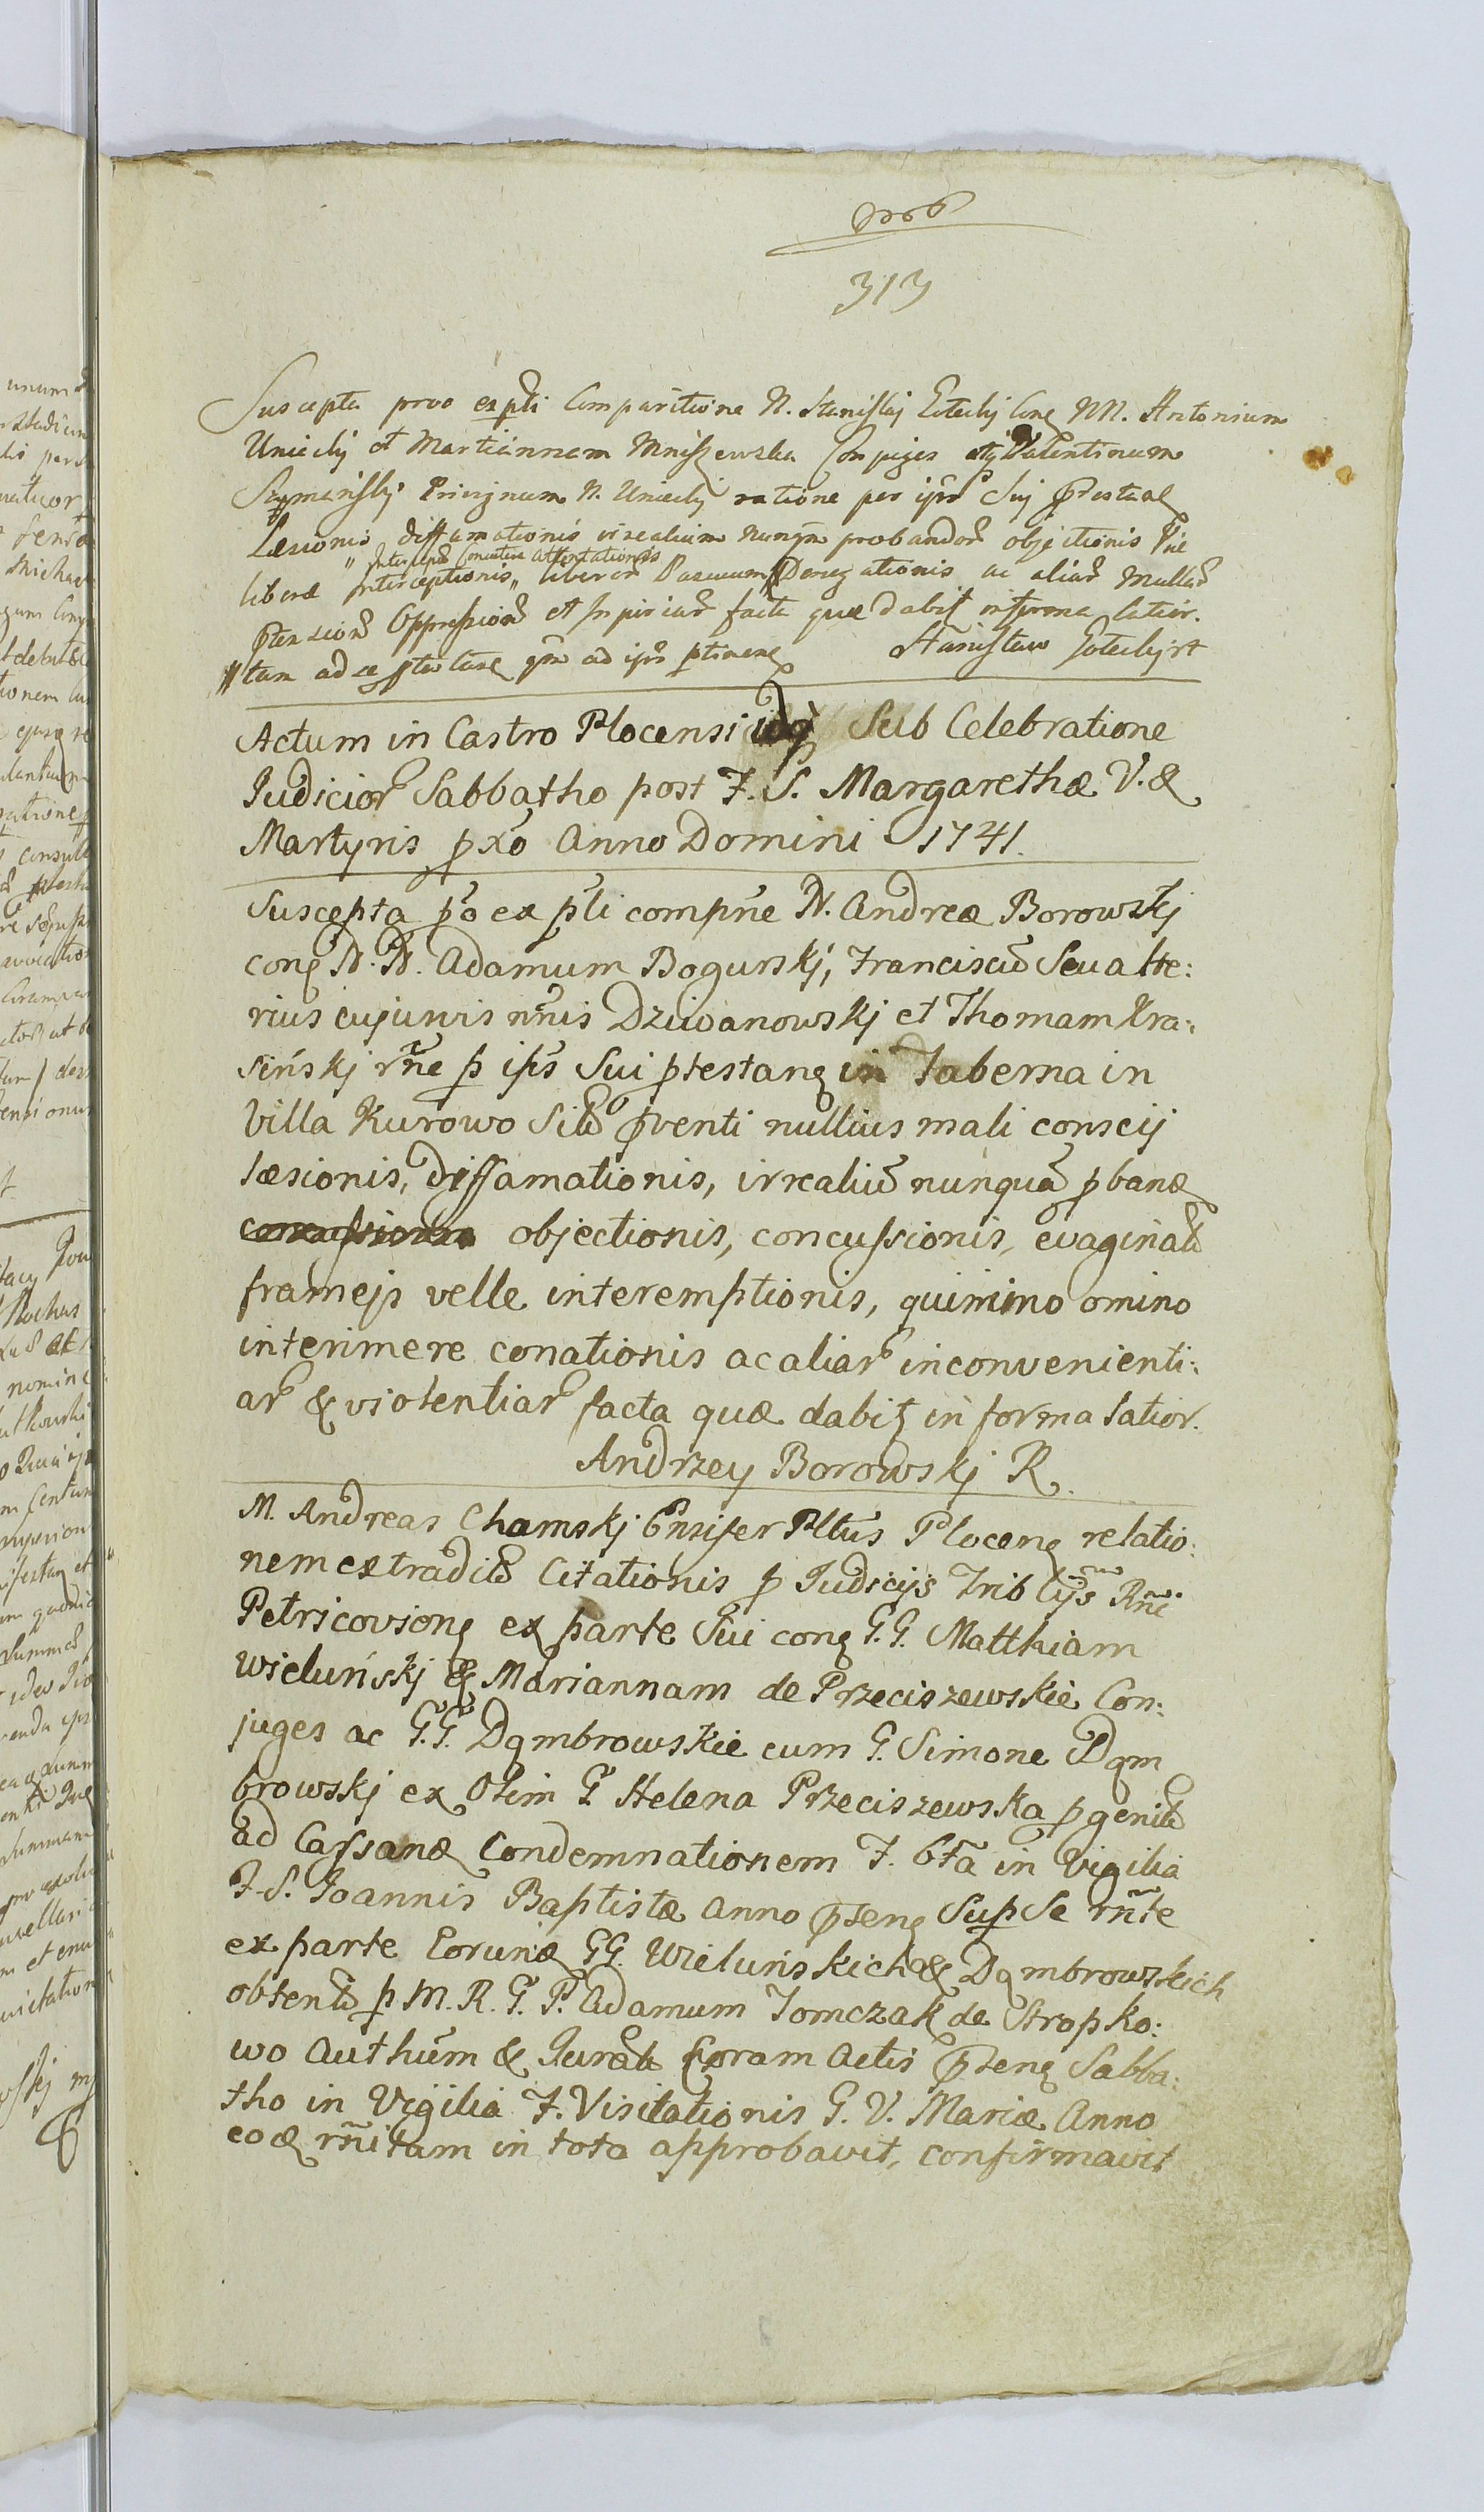 313
Suscepta pro ex pti Comparitione N. Stanislaj Con NN. Antonium
Unieckj et Mariannam Mniszewska Conjuges Valentinum
Privignum N. Unieckj ratione per ipso Sui
Læsionis diffamationis irrealium nunqm probandar objectionis Viæ
attentationis
liberæ Interceptionis liberor Derogationis ac aliar
Oppression et Injuriar facta quæ dabit in forma latior.
tam ad se qm ad ips ptinen Stanisław
Actum in Castro Plocensi idq Sub Celebratione
Judicior Sabbatho post F. S. Margarethæ V. &
Martyris pxo Anno Domini 1741.
Suscepta po ex pti compne N. Andreæ Borowskj
con N. N. Adamum Bogurskj, Franciscu Seu alte:
rius cujusvis nnis Dziwanowskj et Thomam Kra:
sińskj rne p ips Sui ptestan in Taberna in
Villa Kurowo Sit pventi nullius mali conscij
læsionis, diffamationis, irrealiu nunqua pban
objectionis, concussionis, evaginat
framejs velle interemptionis, quinimo omino
interimere conationis ac aliar inconvenienti:
ar & violentiar facta quæ dabit in forma latior.
Andrzey Borowskj R.
M. Andreas Chamskj Ensifer Pltus Plocen relatio:
nem extradit Citationis p Judicijs Trib Lijs Rni
Petricovien ex parte Sui con G.G. Matthiam
Wieluńskj & Mariannam de Przeciszewskie Con:
juges ac G.G. Dąmbrowskie cum G. Simone Dąm
browskj ex Olim G. Helena Przeciszewska pgenit
ad Cassand Condemnationem F. 6ta in Vigilia
F. S. Joannis Baptistæ Anno psen Sup Se rnte
ex parte Eorund GG. Wieluńskich & Dąmbrowskich
obtent p M. R. G. P. Adamum Tomczak de Stropko:
wo Authum & Jurat Coram Actis psen Sabba:
tho in Vigilia F. Visitationis G. V. Mariæ Anno
eod rnitam in toto approbavit, confirmavit